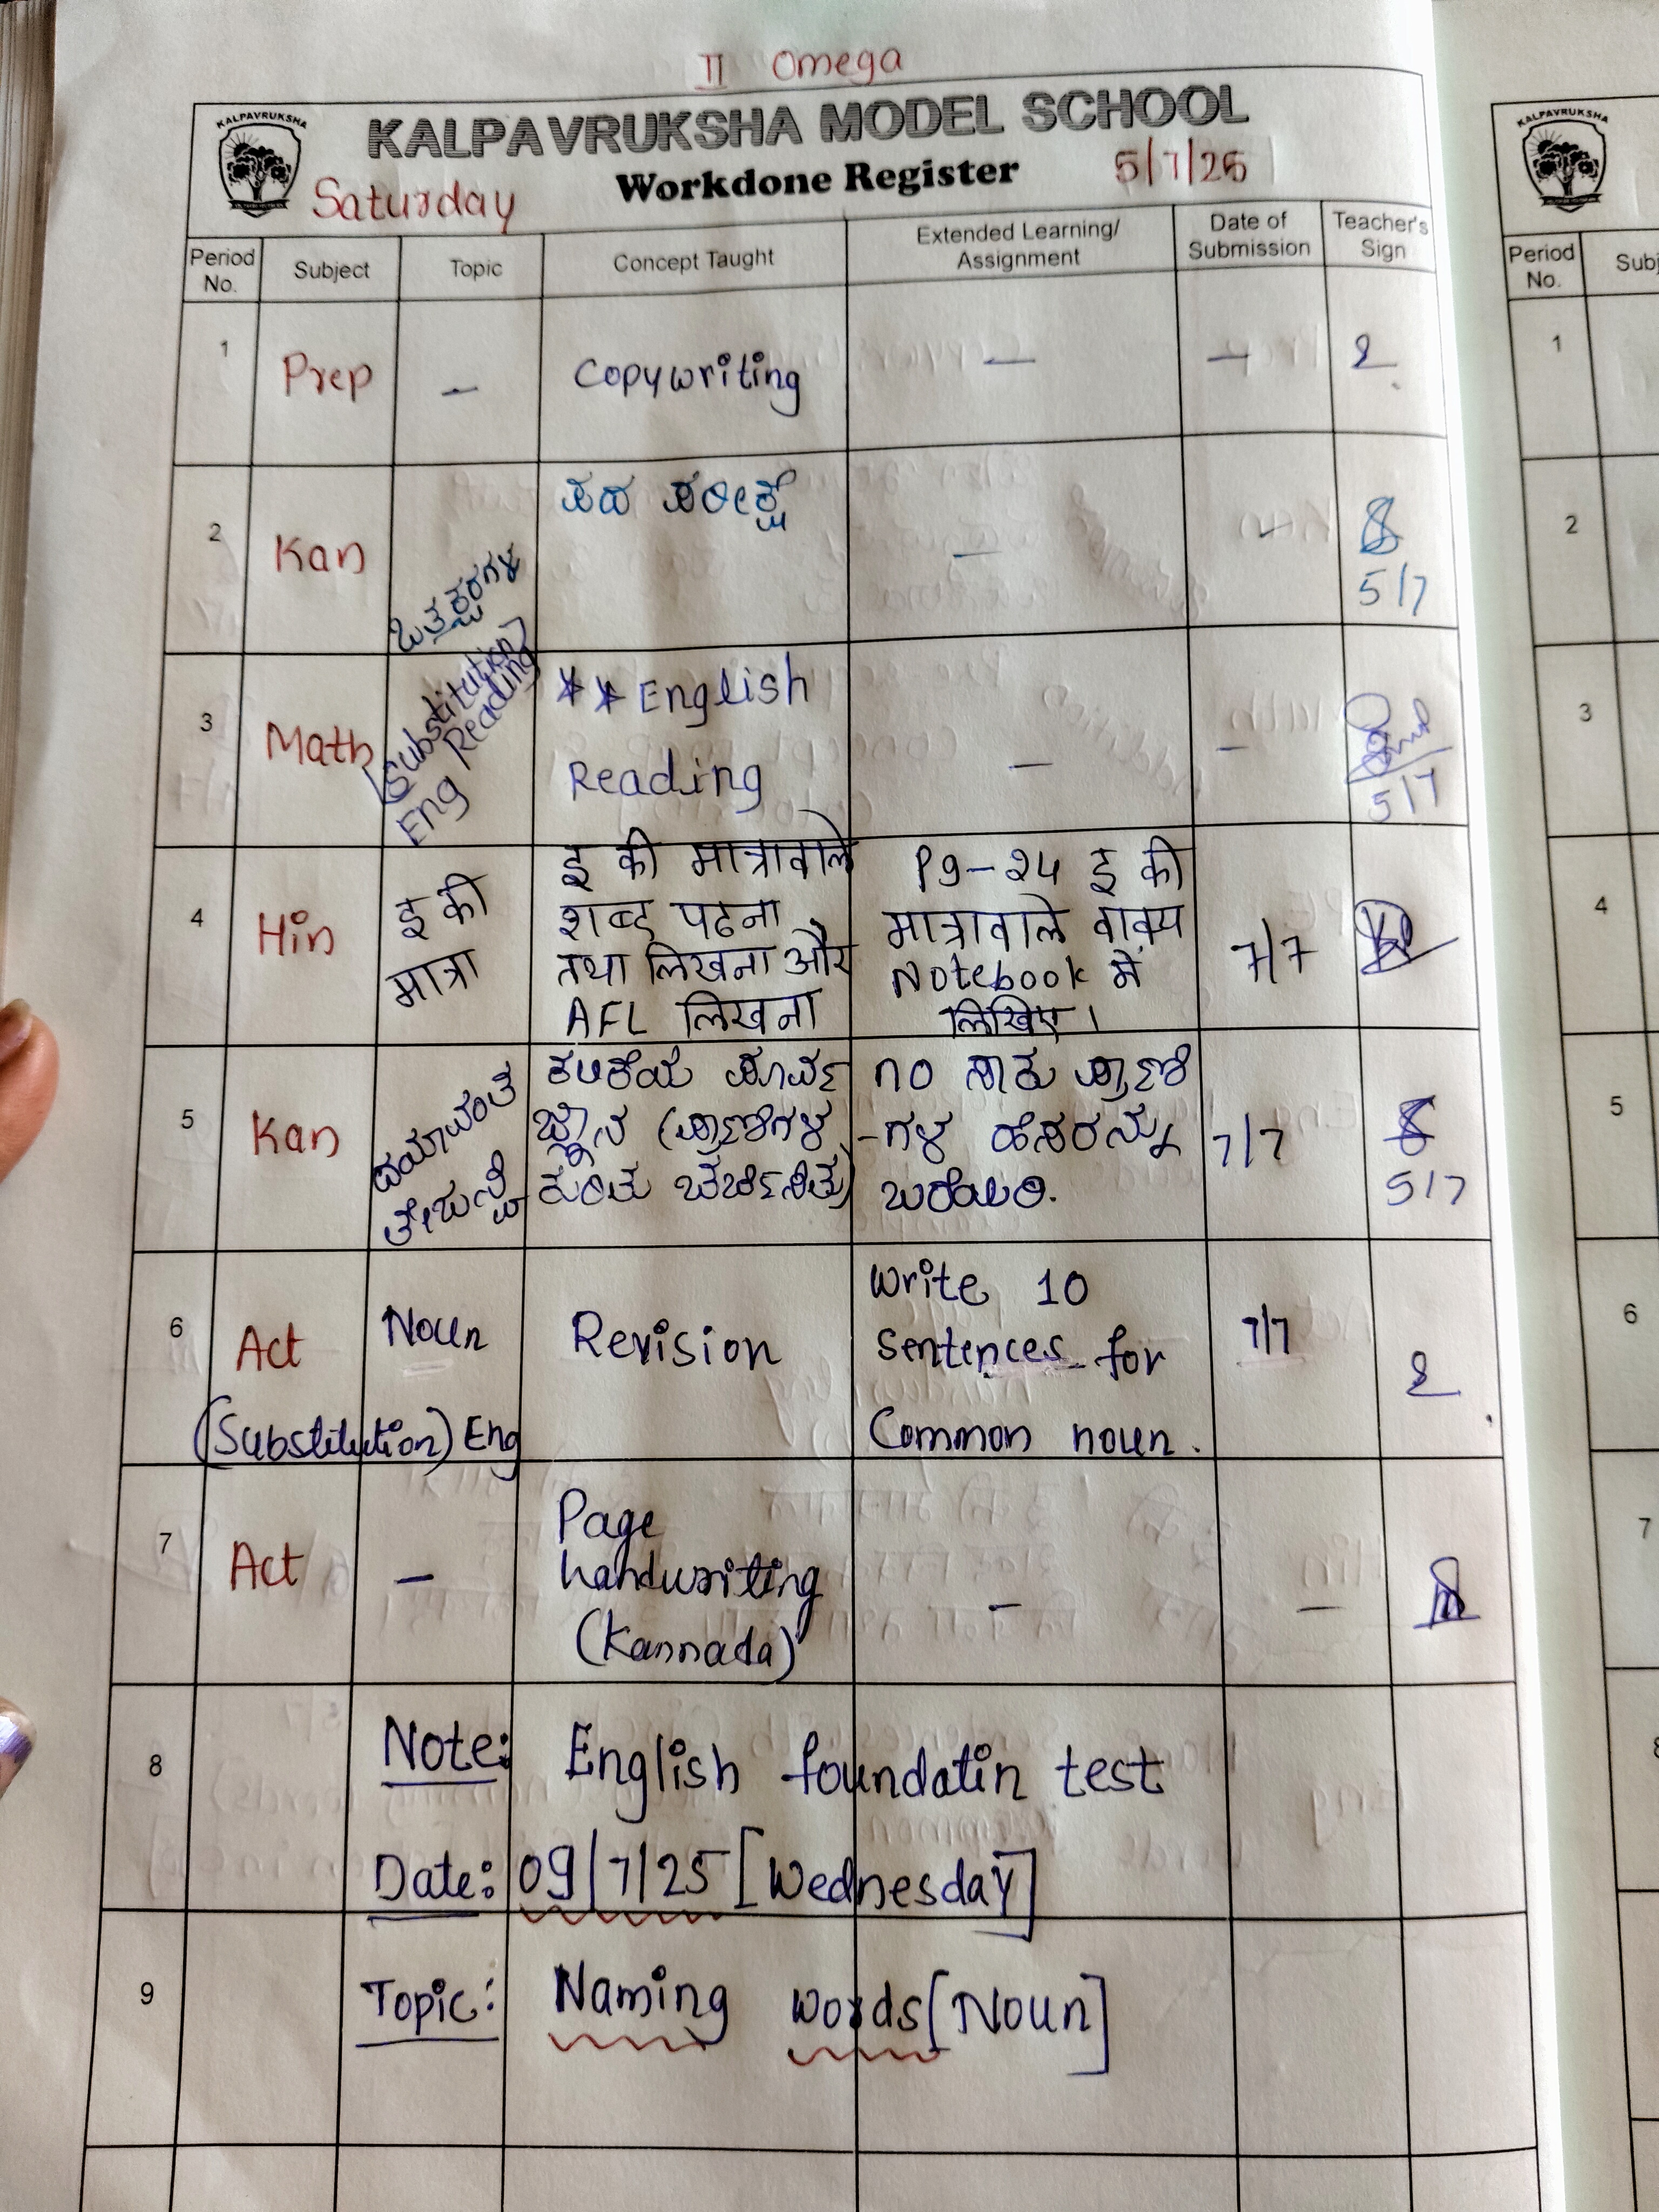 II Omega
KALPAVRUKSHA
KALPAVRUKSHA MODEL SCHOOL
Saturday Workdone Register 5/7/25
Period No. Subject Topic Concept Taught Extended Learning/ Assignment Date of Submission Teacher's Sign
1 Prep - Copywriting - -
2 Kan ಪದ ಪರೀಕ್ಷೆ - - 5/7
3 Math [Substitution] Eng Reading ** English Reading - - 5/7
4 Hin इ की मात्रा
इ की मात्रावाले
शब्द पढना
तथा लिखना और
AFL लिखना
Pg-24 इ की
मात्रावाले वाक्य
Notebook में
लिखिए।
7/7
5 Kan
ಕಲಿಕೆಯ ಪೂರ್ವ
ಜ್ಞಾನ (ಪ್ರಾಣಿಗಳ
ಕುರಿತು ಚರ್ಚಿಸಿತು)
೧೦ ಸಾಕು ಪ್ರಾಣಿ
-ಗಳ ಹೆಸರನ್ನು
ಬರೆಯಿರಿ.
7/7
5/7
6 Act (Substitution) Eng
Noun
Revision
Write 10
sentences for
Common noun.
7/7
7 Act -
Page
handwriting
(Kannada)
- -
8 Note: English foundatin test
Date: 09/7/25 [Wednesday]
9 Topic: Naming words [Noun]
KALPAVRUKSHA
Period No.
1
2
3
4
5
6
7